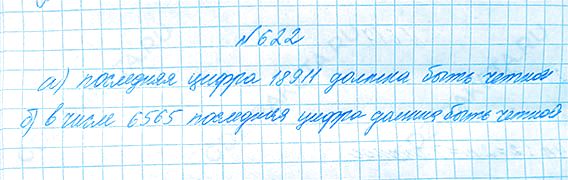 №622
а) последняя цифра 18911 должна быть четной
б) в числе 6565 последняя цифра должна быть четной